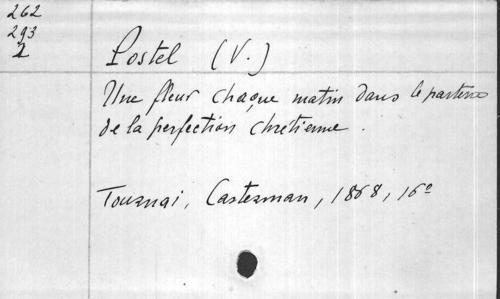 262
293
2
Postel (V.)
Une fleur chaque matin dans le parterre
de la perfection chrétienne.
Tournai, Casterman, 1868, 16°